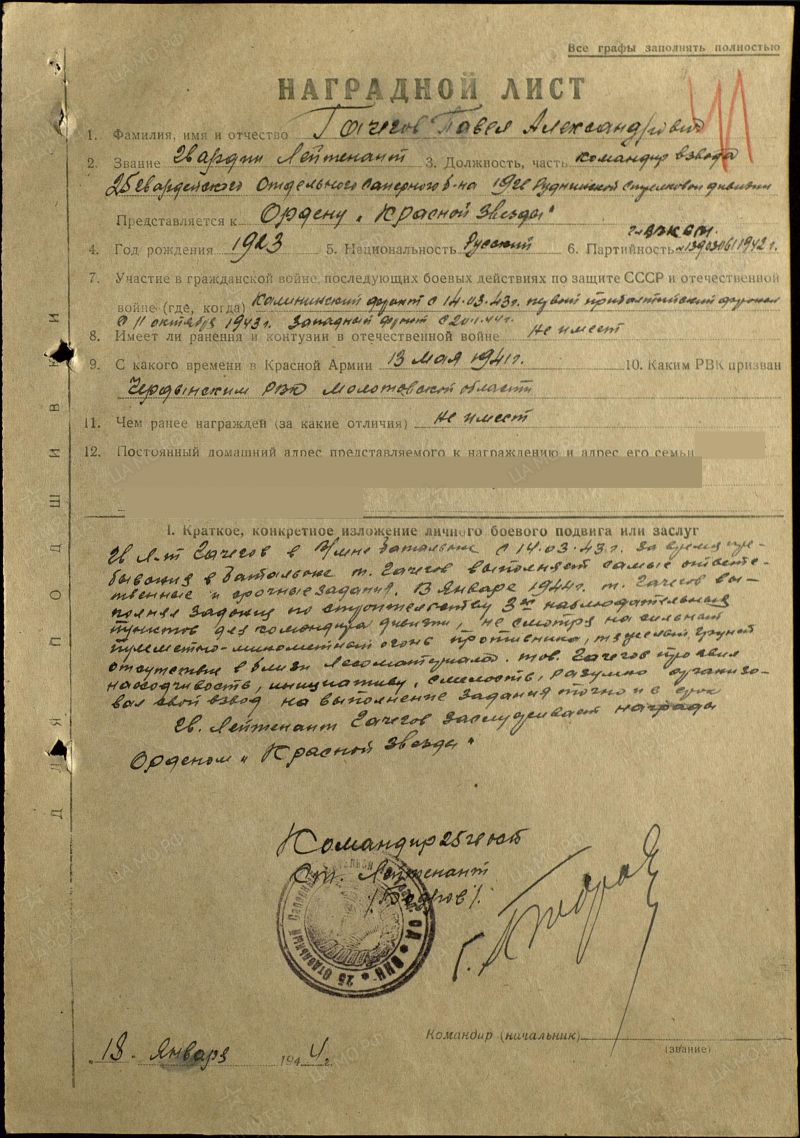 Все графы заполнять полностью
НАГРАДНОЙ ЛИСТ
1. Фамилия, имя и отчество Гачегов Павел Александрович
2. Звание Гвардии Лейтенант 3. Должность, часть командир взвода
25 Гвардейского Отдельного Саперного б-на 19 гв Рудненской стрелковой дивизии
Представляется к Ордену „Красной Звезды"
4. Год рождения 1923 5. Национальность Русский 6. Партийность ВЖСМ 1942 г.
7. Участие в гражданской войне, последующих боевых действиях по защите СССР и отечественной
войне (где, когда) Калининский фронт с 14.03.43 г. первой прибалтийский фронт
С 11 октября 1943 г. Западный фронт с
8. Имеет ли ранения и контузии в отечественной войне Не имеет
9. С какого времени в Красной Армии 13 мая 1941 г. 10. Каким РВК призван
Чердынским РВК Молотовской области
11. Чем ранее награжден (за какие отличия) не имеет
12. Постоянный домашний адрес представляемого к награждению и адрес его семьи
I. Краткое, конкретное изложение личного боевого подвига или заслуг
Гв Л-т Гачегов в батальоне с 14.03.43 г. За время пре-
бывания в батальоне т. Гачегов выполняет самые ответс-
твенные и срочные задания. В Январе 1944 г. т. Гачегов вы-
полнял задания по строительству 3х наблюдательных
пунктов для командира дивизии, не смотря на сильный
пулеметно-минометный огонь противника, тяжелый грунт
отсутствие в близи лесоматериала. тов. Гачегов проявил
находчивость, инициативу, смелость, разумно организо-
вал свой взвод на выполнение задания точно и в срок
Гв. Лейтенант Гачегов заслуживает награды
Орденом „Красной Звезды"
Командир 25
Ст. Лейтенант
/Бодров/.
25 ОТДЕЛЬНЫЙ
Командир (начальник)
(звание)
„18 Января 1944 г.
ДЛЯ ПОДШИВКИ